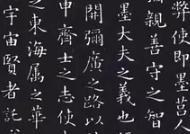 即墨莒人
親善守之智
墨大夫之義也
開彌廣之路以
申齊士之志使
之東海属之華
宇宙賢者託